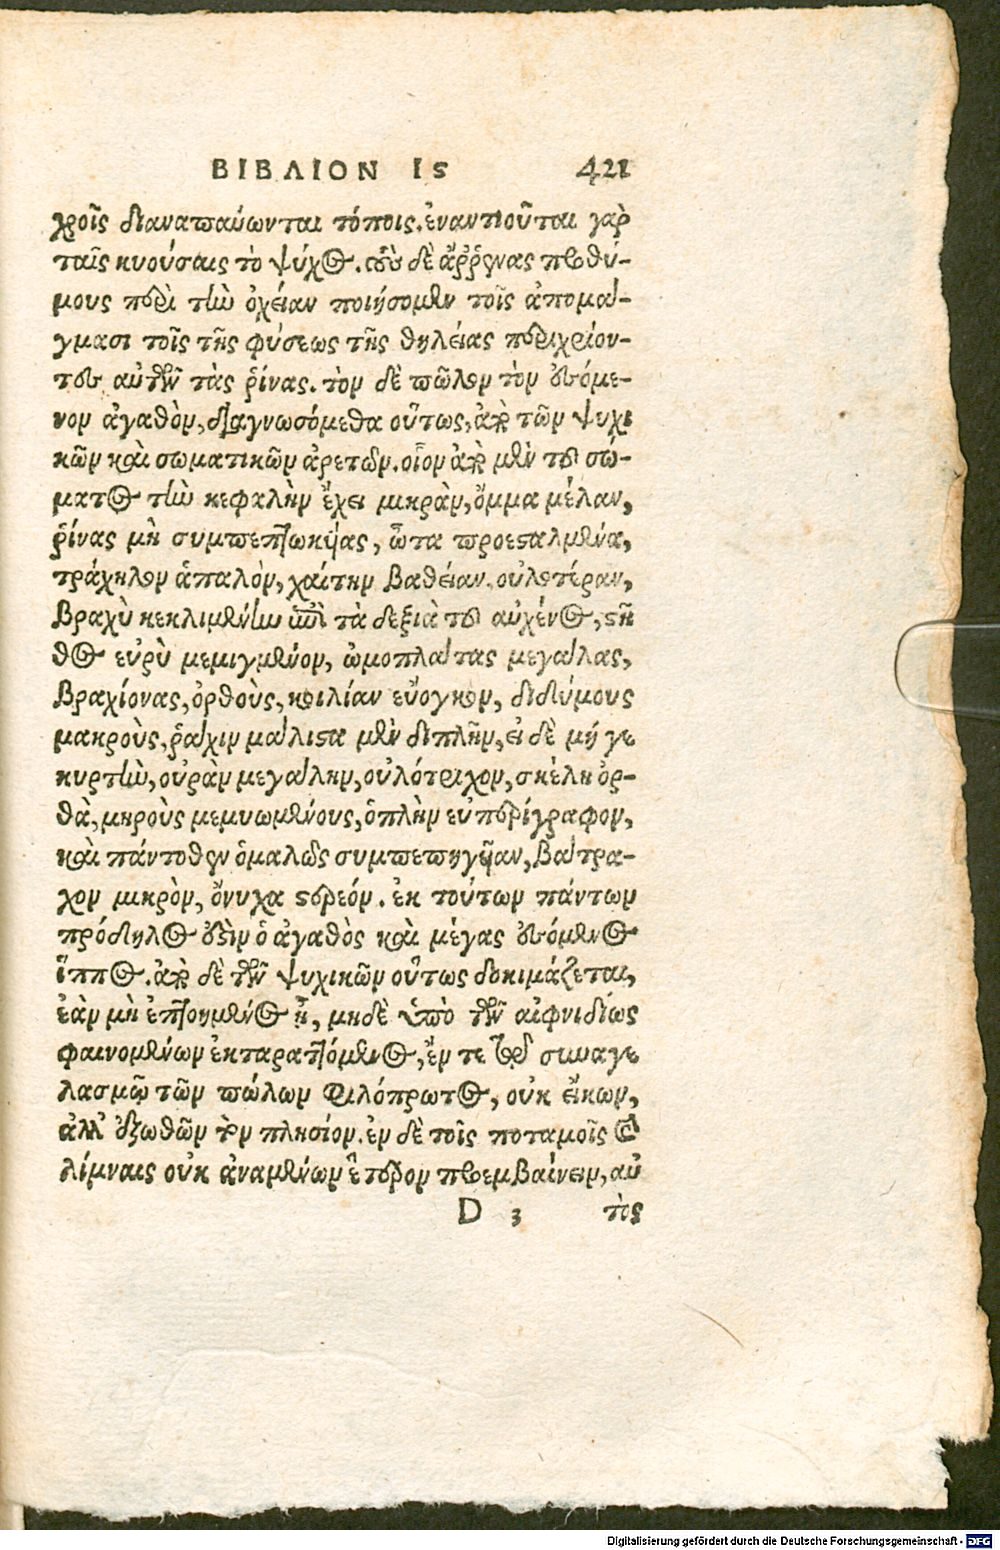 ΒΙΒΛΙΟΝ Ιϛ 421
χροῖς διαναπαύωνται τόποις. ἐναντιοῦται γαρ
ταῖς κυούσαις τὸ ψύχος. τοὺς δὲ ἄῤῥενας προθύ-
μους περὶ τὴν ὀχείαν ποιήσομεν τοῖς ἀπομάγ-
γμασι τοῖς τῆς φύσεως τῆς θηλείας περιχρίον-
τες αὐτῶν τὰς ῥίνας. τὸν δὲ πῶλον τὸν ἐσόμε-
νον ἀγαθὸν, διαγνωσόμεθα οὕτως, ἀπὸ τῶν ψυχι
κῶν καὶ σωματικῶν ἀρετῶν. οἷον ἀπὸ μὲν τοῦ σώ-
ματος τὴν κεφαλὴν ἔχει μικρὰν, ὄμμα μέλαν,
ῥίνας μὴ συμπεπτωκυίας, ὦτα προεσταλμένα,
τράχηλον ἁπαλὸν, χαίτην βαθείαν, οὐλοτέραν,
βραχὺ κεκλιμένην ἐπὶ τὰ δεξιὰ τοῦ αὐχένος, στῆ
θος εὐρὺ μεμιγμένον, ὠμοπλάτας μεγάλας,
βραχίονας, ὀρθοὺς, κοιλίαν εὔογκον, διδύμους
μακροὺς, ῥάχιν μάλιστα μὲν διπλῆν, εἰ δὲ μή γε
κυρτὴν, οὐρὰν μεγάλην, οὐλότριχον, σκέλη ὀρ-
θὰ, μηροὺς μεμυωμένους, ὁπλὴν εὐπερίγραφον,
καὶ πάντοθεν ὁμαλῶς συμπεπηγυῖαν, βάτρα-
χον μικρὸν, ὄνυχα στερεόν. ἐκ τούτων πάντων
πρόδηλος ἐστὶν ὁ ἀγαθὸς καὶ μέγας ἐσόμενος
ἵππος. ἀπὸ δὲ τῶν ψυχικῶν οὕτως δοκιμάζεται,
ἐὰν μὴ ἐπτοημένος ᾖ, μηδὲ ὑπὸ τῶν αἰφνιδίως
φαινομένων ἐκταραττόμενος, ἔν τε τῷ συναγε
λασμῷ τῶν πώλων φιλόπρωτος, οὐκ εἴκων,
ἀλλ' ἐξωθῶν τὸν πλησίον. ἐν δὲ τοῖς ποταμοῖς καὶ
λίμναις οὐκ ἀναμένων ἕτερον προεμβαίνειν, αὐ
D 3 τὸς
Digitalisierung gefördert durch die Deutsche Forschungsgemeinschaft - DFG